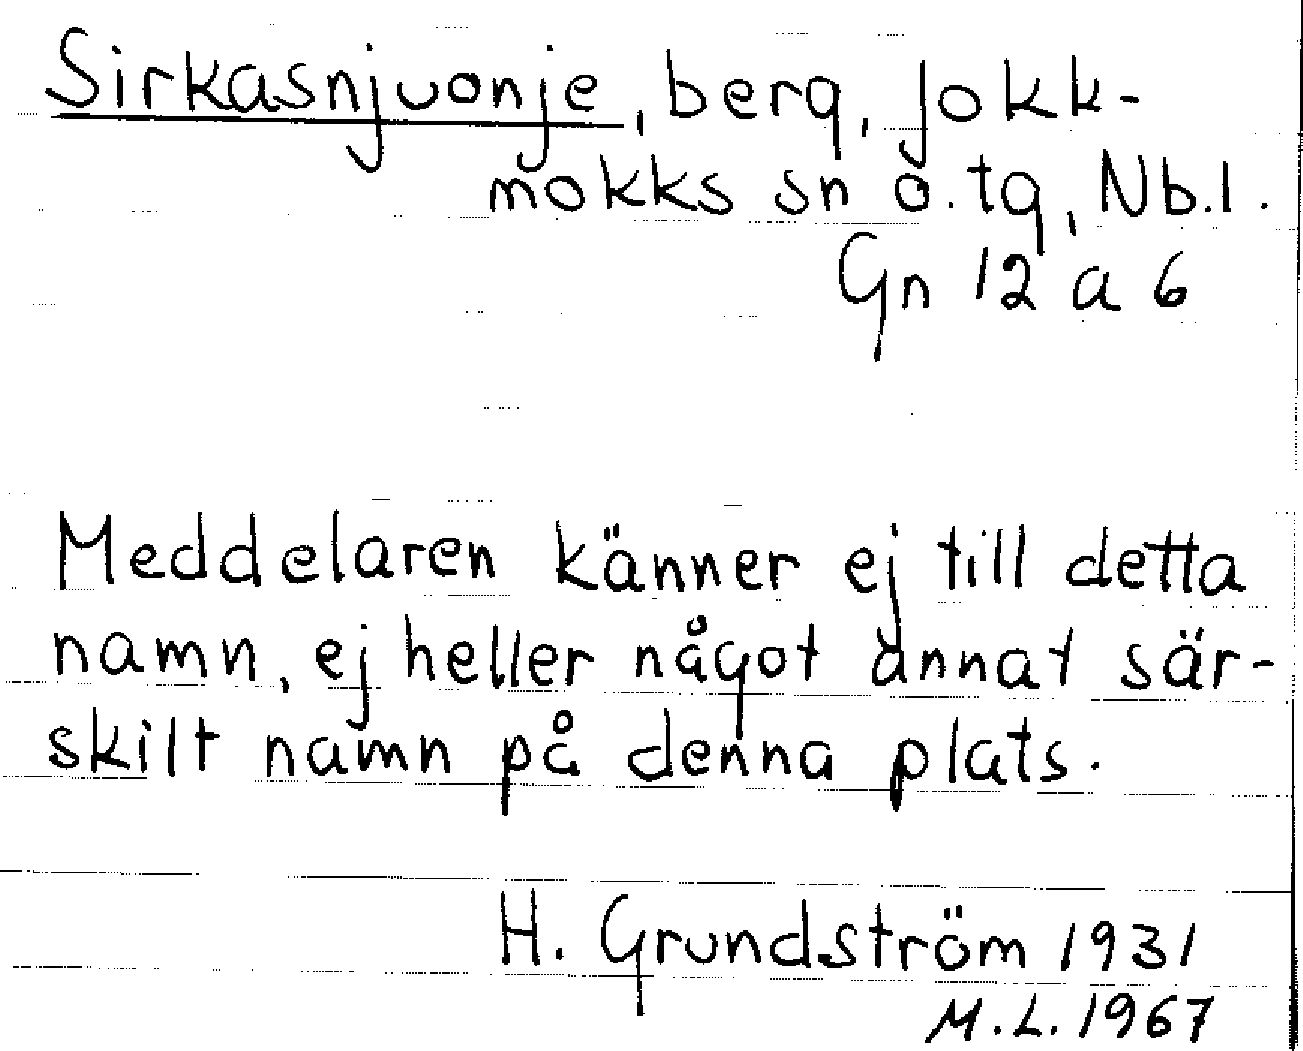 Sirkasnjuonje, berg, Jokk-
mokks sn o. tg, Nb.l.
Gn 12 a 6
Meddelaren känner ej till detta
namn, ej heller något annat sär-
skilt namn på denna plats.
H. Grundström 1931
M.L. 1967